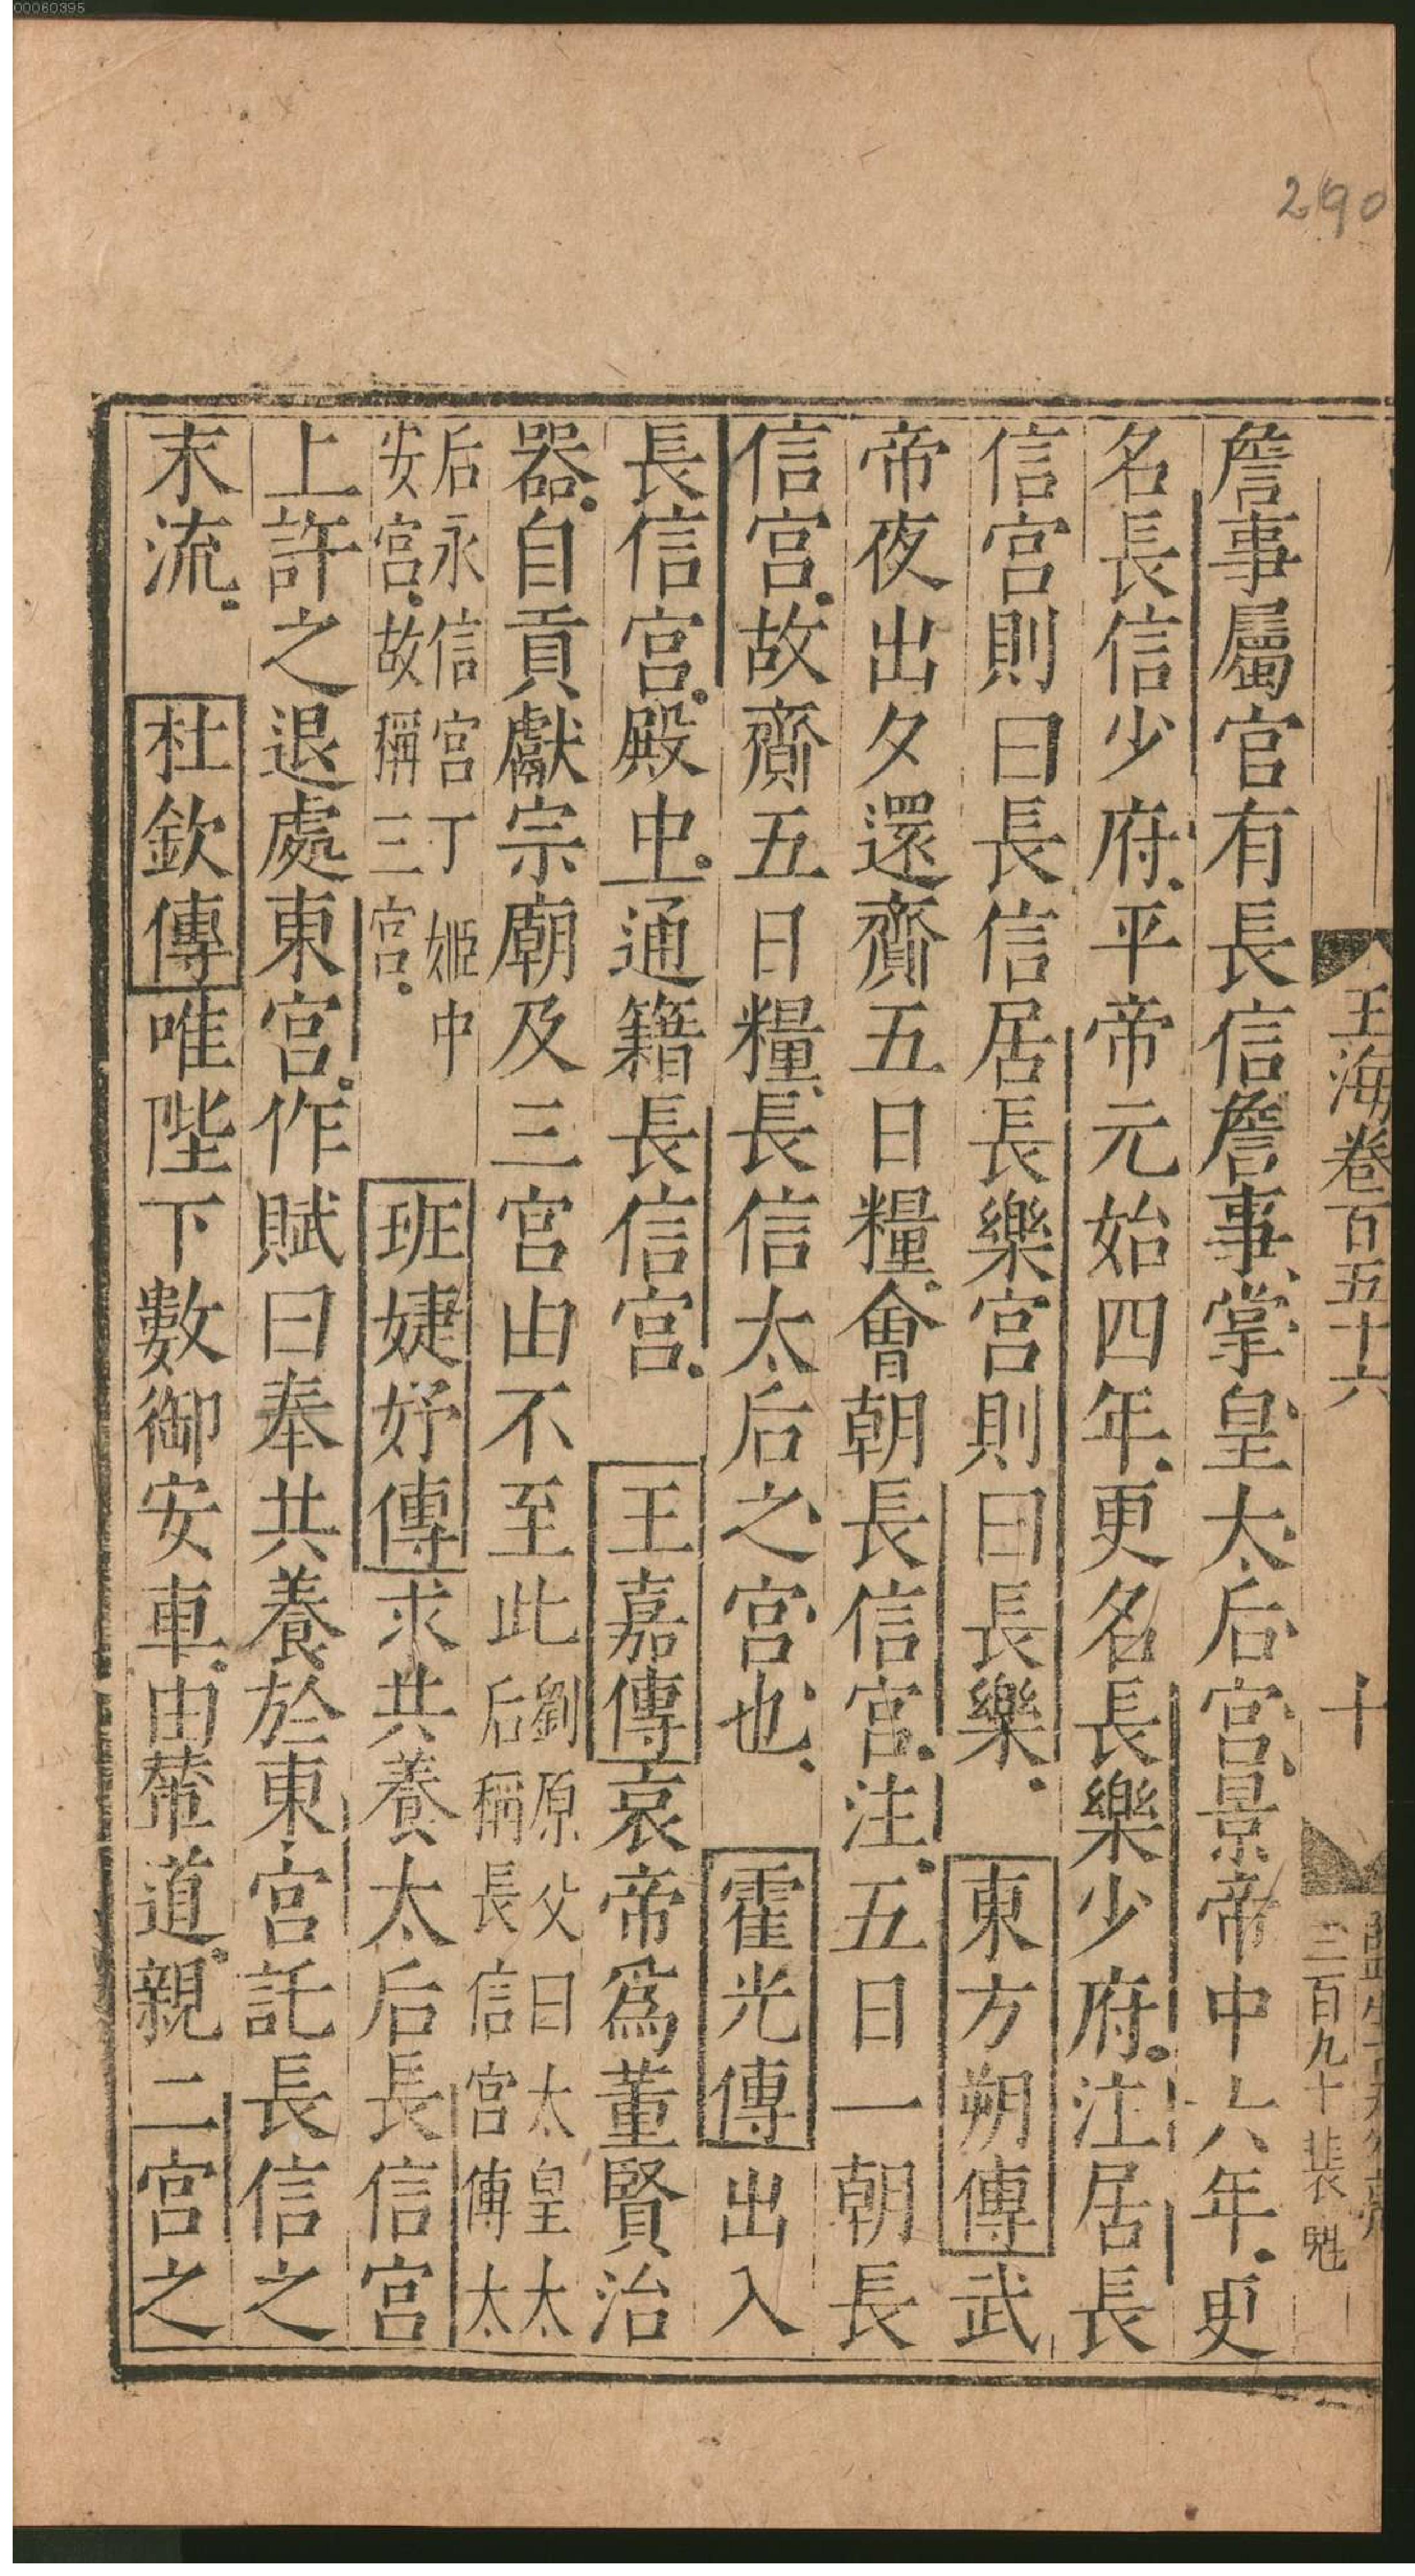 00060395
290
玉海卷百五十六
十
三百九十
詹事屬官有長信詹事掌皇太后宮景帝中六年更
名長信少府平帝元始四年更名長樂少府注居長
信宮則曰長信居長樂宮則曰長樂 東方朔傳武
帝夜出夕還齎五日糧會朝長信宮注五日一朝長
信宮故齎五日糧長信太后之宮也 霍光傳出入
長信宮殿中通籍長信宮 王嘉傳哀帝爲董賢治
器自貢獻宗廟及三宮由不至此劉原父曰太皇太
后稱長信宮傅太
后永信宮丁姬中
安宮故稱三宮 班婕妤傳求共養太后長信宮
上許之退處東宮作賦曰奉共養於東宮託長信之
末流 杜欽傳唯陛下數御安車由輦道親二宮之